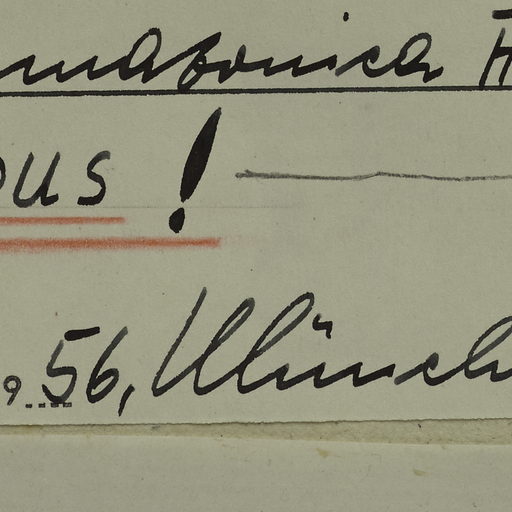 amazonica H
ous!
9 56, Münch